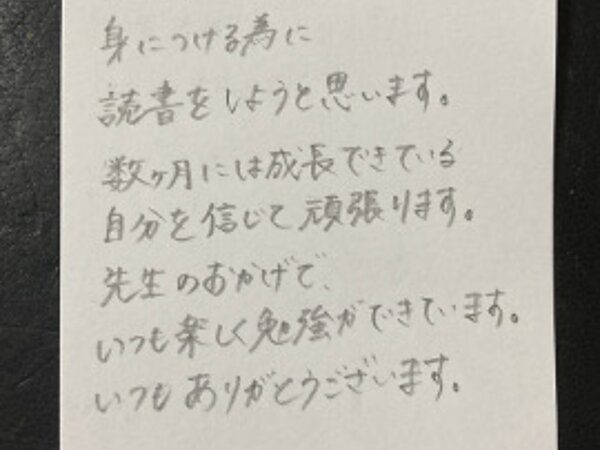 身につける為に
読書をしようと思います。
数ヶ月には成長できている
自分を信じて頑張ります。
先生のおかげで、
いつも楽しく勉強ができています。
いつもありがとうございます。